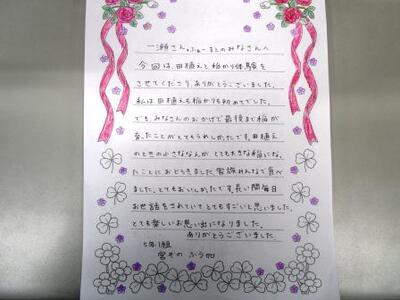 一瀬さん。ふぁーまとのみなさんへ
今回は、田植えと稲かり体験を
させてくださり、ありがとうございました。
私は、田植えも稲かりも初めてでした。
でも、みなさんのおかげで最後まで稲が
たことがとてもうれしかったです。田植え
のときの小さななえが、とても大きな稲にな
たことにおどろきました。家族みんなで食べ
ました。とてもおいしかったです。長い間毎日
お世話をされていて、とてもすごいと思いました。
とても楽しいお思い出になりました。
ありがとうございました。
5年1組
ふう加